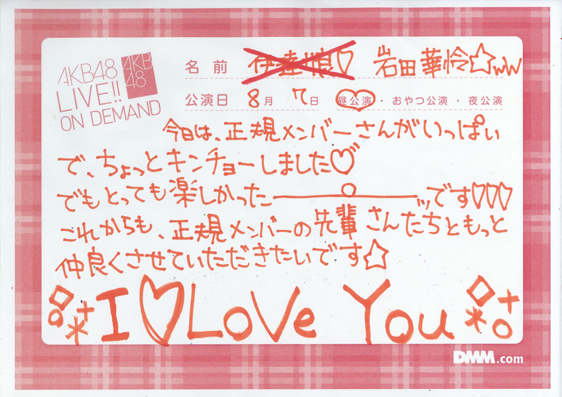 AKB48
LIVE!!
ON DEMAND
AKB
48
名前 伊達娘♡ 岩田華怜☆ww
公演日 8月7日 昼公演・おやつ公演・夜公演
今日は、正規メンバーさんがいっぱい
で、ちょっとキンチョーしました♡
でもとっても楽しかった―――○―――ッッです♡♡♡
これからも、正規メンバーの先輩さんたちともっと
仲良くさせていただきたいです☆
I♡LoVe You
DMM.com